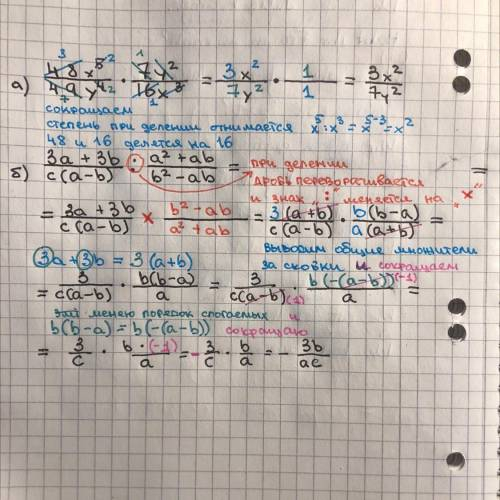 а) 48x⁵/49y⁴ · 7y²/16x³ = 3x²/7y² · 1/1 = 3x²/7y²
сокращаем
степень при делении отнимается x⁵:x³=x⁵⁻³=x²
48 и 16 делятся на 16
б) 3a+3b/c(a-b) : a²+ab/b²-ab = при делении
дробь переворачивается
и знак ":" меняется на "x" =
= 3a+3b/c(a-b) × b²-ab/a²+ab = 3(a+b)/c(a-b) · b(b-a)/a(a+b) =
выводим общие множители
3a+3b = 3(a+b) за скобки и сокращаем
= 3/c(a-b) · b(b-a)/a = 3/c(a-b)(1) · b(-(a-b))(-1)/a =
меняю порядок слогаемых и
b(b-a)=b(-(a-b)) сокращаю
= 3/c · b·(-1)/a = -3/c · b/a = - 3b/ac